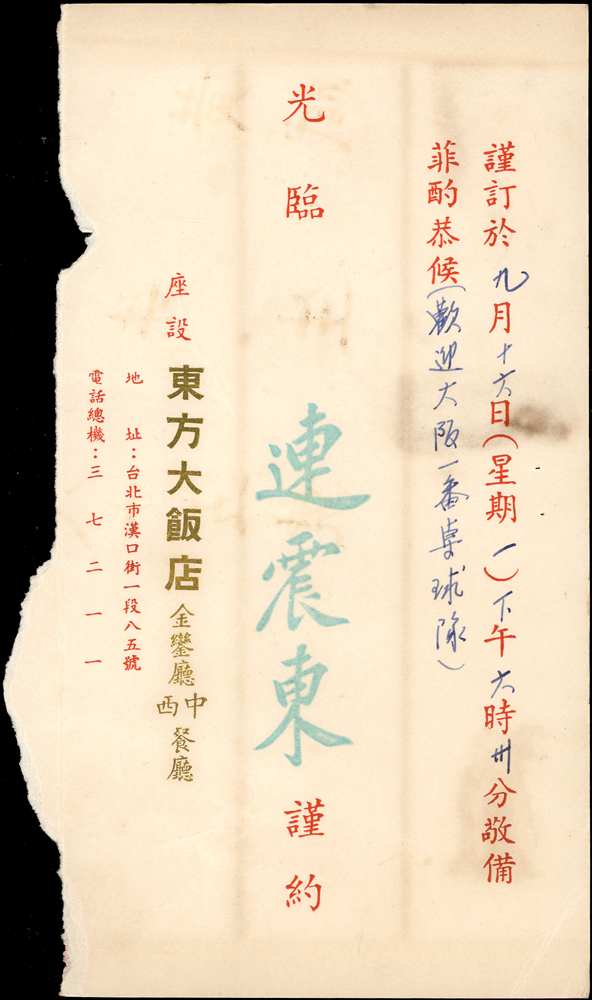 謹訂於九月十六日(星期一)下午六時卅分敬備
菲酌恭候(歡迎大阪一番桌球隊)
光臨
連震東 謹約
座設 東方大飯店 金鑾廳 中西餐廳
地址:台北市漢口街一段八五號
電話總機:三七二一一